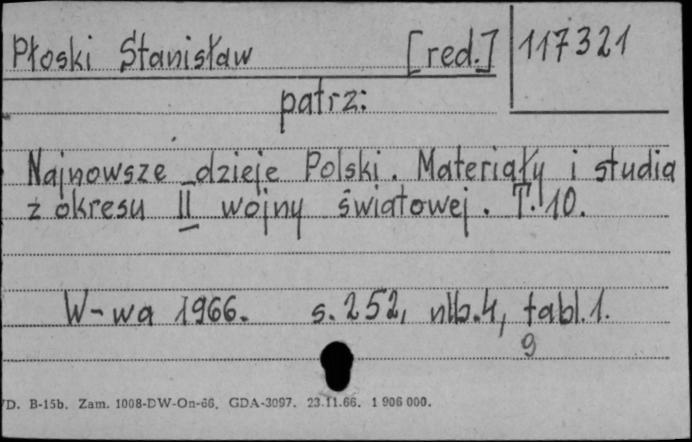 Płoski Stanisław [red.] 117321
patrz:
Najnowsze dzieje Polski. Materiały i studia
z okresu II wojny światowej. T. 10.
W-wa 1966. s. 252, nlb. 4, tabl. 1.
9
D. B-15b. Zam. 1008-DW-On-66. GDA-3097. 23.11.66. 1 906 000.